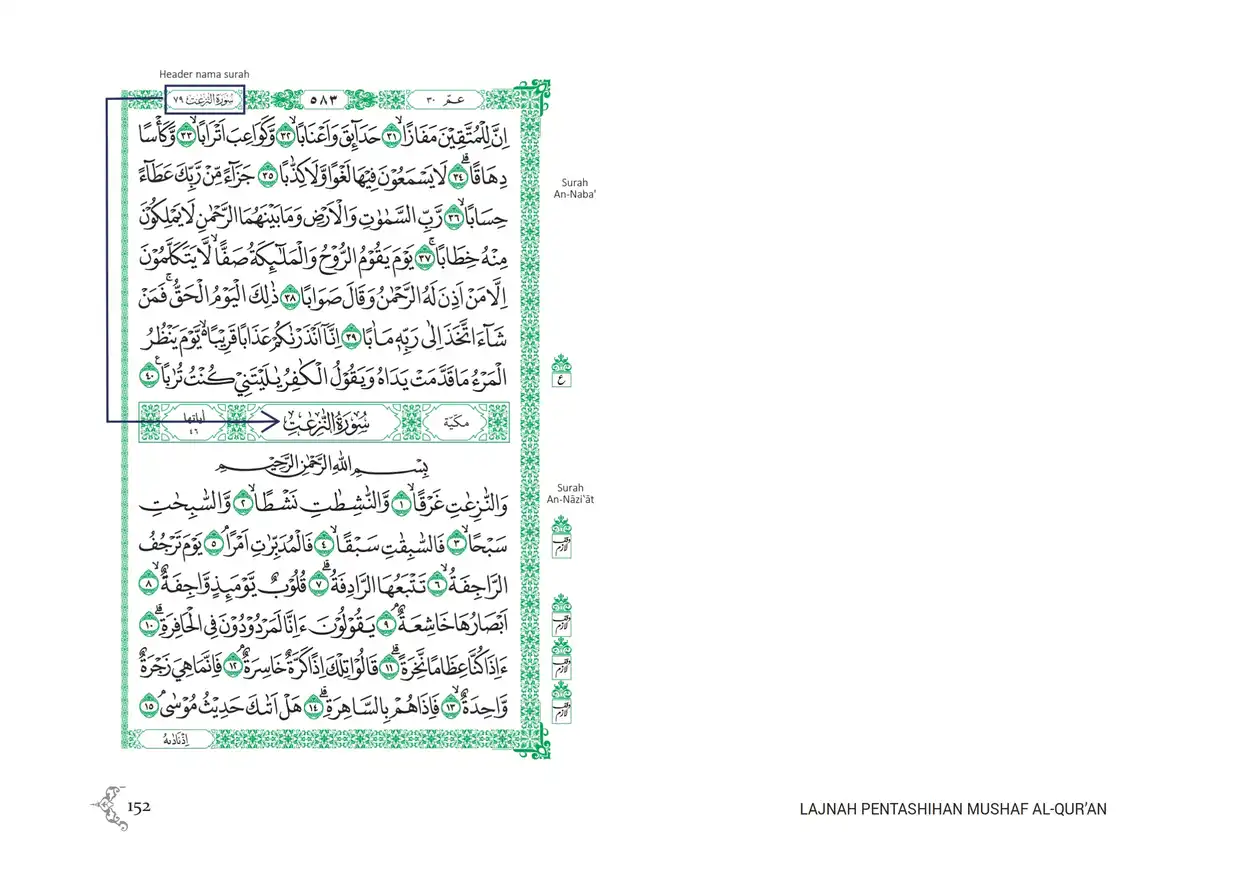 Header nama surah
عـمّ ٣٠
٥٨٣
سُوْرَةُ النّٰزِعٰتِ ٧٩
اِنَّ لِلْمُتَّقِيْنَ مَفَازًاۙ ٣١ حَدَاۤىِٕقَ وَاَعْنَابًاۙ ٣٢ وَّكَوَاعِبَ اَتْرَابًاۙ ٣٣ وَّكَأْسًا
دِهَاقًاۗ ٣٤ لَا يَسْمَعُوْنَ فِيْهَا لَغْوًا وَّلَا كِذّٰبًا ٣٥ جَزَاۤءً مِّنْ رَّبِّكَ عَطَاۤءً
حِسَابًاۙ ٣٦ رَّبِّ السَّمٰوٰتِ وَالْاَرْضِ وَمَا بَيْنَهُمَا الرَّحْمٰنِ لَا يَمْلِكُوْنَ
مِنْهُ خِطَابًاۚ ٣٧ يَوْمَ يَقُوْمُ الرُّوْحُ وَالْمَلٰۤىِٕكَةُ صَفًّاۙ لَّا يَتَكَلَّمُوْنَ
اِلَّا مَنْ اَذِنَ لَهُ الرَّحْمٰنُ وَقَالَ صَوَابًا ٣٨ ذٰلِكَ الْيَوْمُ الْحَقُّۚ فَمَنْ
شَاۤءَ اتَّخَذَ اِلٰى رَبِّهٖ مَاٰبًا ٣٩ اِنَّآ اَنْذَرْنٰكُمْ عَذَابًا قَرِيْبًا ەۙ يَّوْمَ يَنْظُرُ
الْمَرْءُ مَا قَدَّمَتْ يَدَاهُ وَيَقُوْلُ الْكٰفِرُ يٰلَيْتَنِيْ كُنْتُ تُرٰبًاࣖ ٤٠
مكيّة
سُوْرَةُ النّٰزِعٰتِ
أياتها
٤٦
بِسْمِ اللّٰهِ الرَّحْمٰنِ الرَّحِيْمِ
وَالنّٰزِعٰتِ غَرْقًاۙ ١ وَّالنّٰشِطٰتِ نَشْطًاۙ ٢ وَّالسّٰبِحٰتِ
سَبْحًاۙ ٣ فَالسّٰبِقٰتِ سَبْقًاۙ ٤ فَالْمُدَبِّرٰتِ اَمْرًاۘ ٥ يَوْمَ تَرْجُفُ
الرَّاجِفَةُۙ ٦ تَتْبَعُهَا الرَّادِفَةُۗ ٧ قُلُوْبٌ يَّوْمَىِٕذٍ وَّاجِفَةٌۙ ٨
اَبْصَارُهَا خَاشِعَةٌۘ ٩ يَقُوْلُوْنَ ءَاِنَّا لَمَرْدُوْدُوْنَ فِى الْحَافِرَةِۗ ١٠
ءَاِذَا كُنَّا عِظَامًا نَّخِرَةًۗ ١١ قَالُوْا تِلْكَ اِذًا كَرَّةٌ خَاسِرَةٌۘ ١٢ فَاِنَّمَا هِيَ زَجْرَةٌ
وَّاحِدَةٌۙ ١٣ فَاِذَا هُمْ بِالسَّاهِرَةِۗ ١٤ هَلْ اَتٰىكَ حَدِيْثُ مُوْسٰىۘ ١٥
اِذْنَادٰىهُ
Surah
An-Naba'
ع
Surah
An-Nāzi‘āt
وقف
لازم
وقف
لازم
وقف
لازم
وقف
لازم
152
LAJNAH PENTASHIHAN MUSHAF AL-QUR’AN